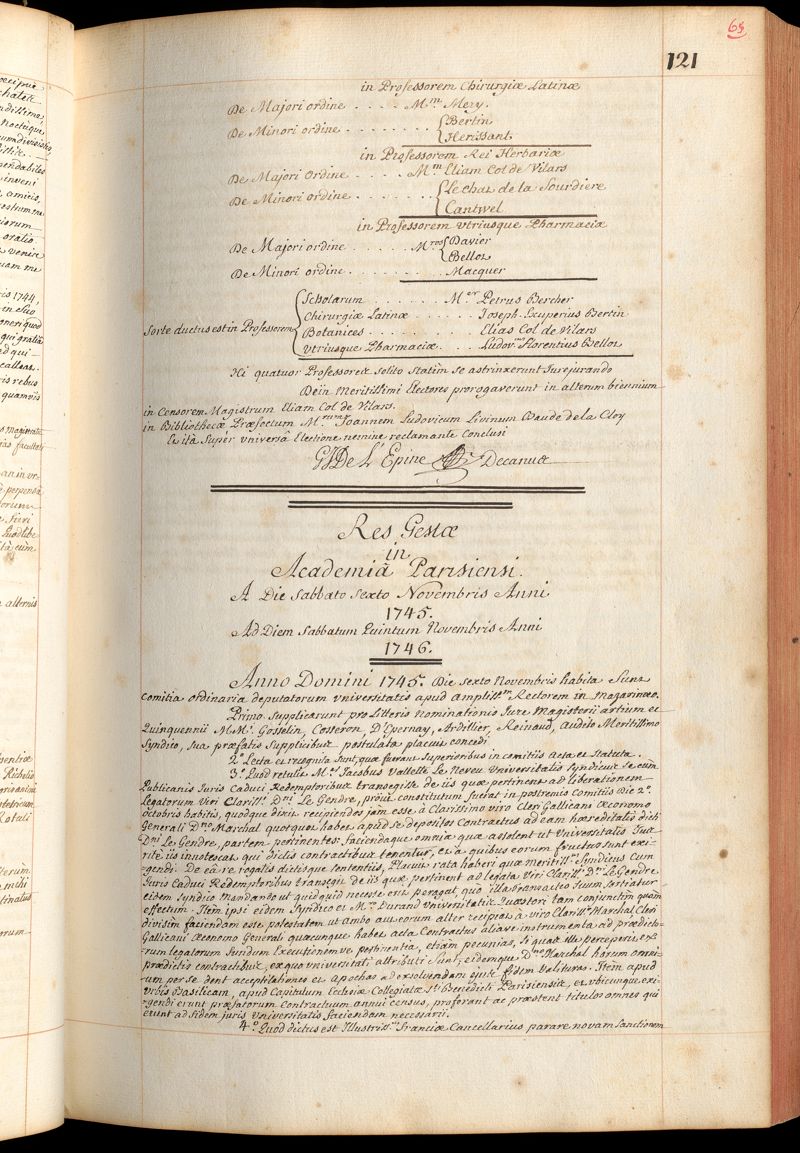 65
121
in Professorem Chirurgiæ Latinæ
De Majori ordine . . . . . M.m Mery.
De Minori ordine . . . . . . . . { Bertin
Herissant.
in Professorem Rei Herbariæ
De Majori Ordine . . . . . M.m Eliam Col de Vilars
De Minori ordine . . . . . . . . { le chat de la Sourdiere
Cantwel
in Professorem Vtriusque Pharmaciæ
De Majori ordine . . . . . . M.ros { Davier
Bellot
De Minori ordine . . . . . . . . Macquer
Sorte ductus est in Professorem
{ Scholarum . . . . . . M.er Petrus Bercher
Chirurgiæ Latinæ . . . . . Joseph. Exuperius Bertin
Botanices . . . . . . . . Elias Col de Vilars
Vtriusque Pharmaciæ . . . Ludov.us Florentius Bellot
Hi quatuor Professores solito statim se astrinxerunt Iurejurando
Dein Meritissimi Electores prorogaverunt in alterum biennium
in Censorem Magistrum Eliam Col de Vilars.
in Bibliothecæ Præfectum M.rum Ioannem Ludovicum Livinum Baude de la Cloy
Et ità Super vniversa Electione nemine reclamante Conclusi
GJ De L'Epine Decanus
Res Gestæ
in
Academiâ Parisiensi.
A Die Sabbato Sexto Novembris Anni
1745.
Ad Diem Sabbatum Quintum Novembris Anni
1746.
Anno Domini 1745. Die Sexto Novembris habita Sunt
Comitia ordinaria deputatorum vniversitatis apud ampliss.m Rectorem in Mazarinæo.
Primo Supplicarunt pro Litteris Nominationis Iure Magisterii artium et
Quinquennii M.M. Gosselin, Costeron, D'Epernay, Ardillier, Reinaud, Audito Meritissimo
Syndico, sua præfatis Supplicibus postulata placuit concedi
2.° Lecta et recognita Sunt, quæ fuerant Superioribus in comitiis acta et Statuta.
3.° Quod retulit M.er Iacobus Vallette Le Neveu Vniversitatis Syndicus Se cum
Publicanis Iuris Caduci Redemptoribus transegisse de iis quæ pertinent ad liberationem
Legatorum Viri Clariss.i D.ni Le Gendre, prout constitutum fuerat in postremis Comitiis Die 2.a
octobris habitis, quodque dixit recipiendos jam esse à Clarissimo viro Cleri Gallicani Œconomo
Generali D.no Marchal quotquot habet apud Se depositos Contractus ad eam hæreditatis dicti
D.ni Le Gendre, partem pertinentes; faciendaque omnia quæ assolent ut Vniversitatis Iura
ritè iis innotescat qui dictis contractibus tenentur, et à quibus eorum fructus sunt exi-
-gendi. De ea re rogatis dictisque Sententiis, Placuit rata haberi quæ meritiss.us Syndicus Cum
Iuris Caduci Redemptoribus transegit de iis quæ pertinent ad legata Viri Clariss.i D.ni Le Gendre
eidem Syndico Mandando ut quidquid necesse erit peragat, quo illa transactio Suum Sortiatur
effectum. Item ipsi eidem Syndico et M.ro Durand Vniversitatis Quæstori tam conjunctim quàm
divisim faciendam esse potestatem ut ambo aut eorum alter recipiat à viro Clariss.o Marchal Cleri
Gallicani Œconomo Generali quæcunque habet acta Contractus aliave instrumenta ad prædicto-
-rum legatorum Fundum Executionemve pertinentia, etiam pecunias, si quas ille perceperit, ex
prædictis contractibus, ex quo vniversitati attributi Sunt; eidemque D.no Marchal harum omni-
-um per se dent acceptilationes et apochas ad exsolvendam ejus fidem Valituras. Item apud
Vrbis Basilicam, apud Capitulum Ecclesiæ Collegiatæ S.ti Benedicti Parisiensis, et vbicunque exi-
-gendi erunt præfatorum Contractuum annui census, proferant ac præstent titulos omnes qui
erunt ad fidem juris Vniversitatis faciendam necessarii.
4.° Quod dictus est Illustriss.us Franciæ Cancellarius parare novam Sanctionem